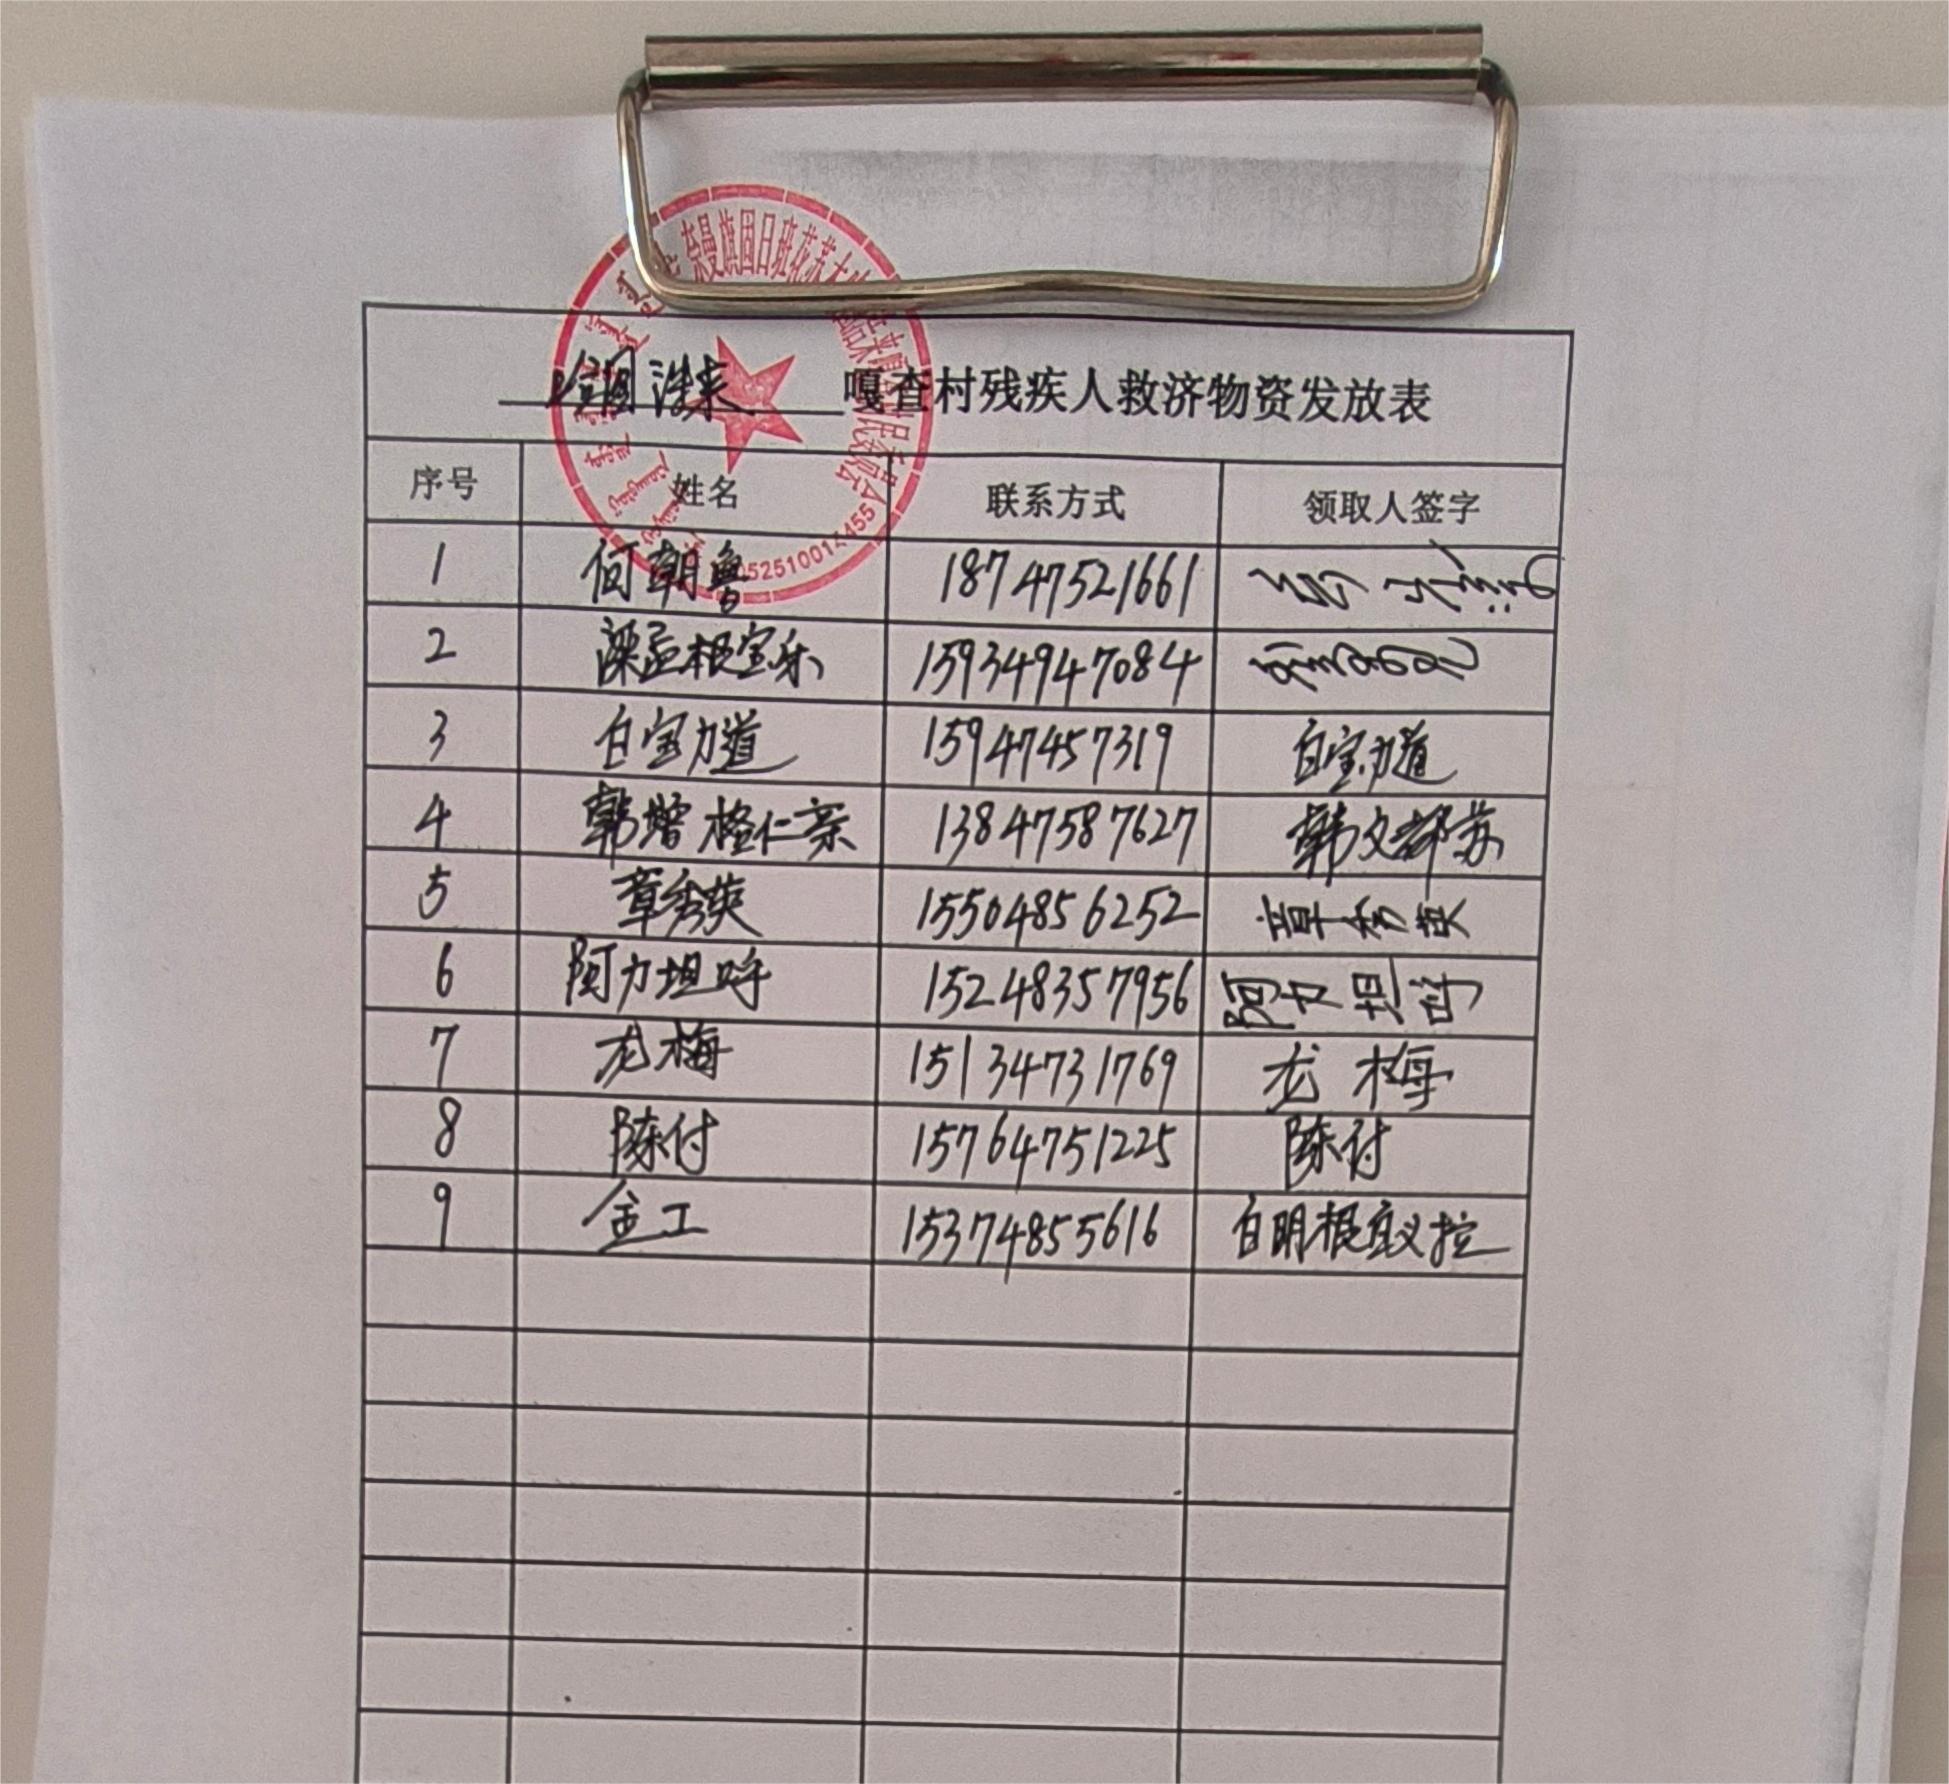 奈曼旗固日班花苏木
52510014455
哈图浩来 嘎查村残疾人救济物资发放表
序号 姓名 联系方式 领取人签字
1 何朝鲁 18747521661
2 梁孟根宝乐 15934947084
3 白宝力道 15947457319 白宝力道
4 韩增格仁亲 13847587627 韩文都苏
5 章秀英 15504856252 章秀英
6 阿力坦呼 15248357956 阿力坦呼
7 龙梅 15134731769 龙梅
8 陈付 15764751225 陈付
9 金工 15374855616 白明根宝拉